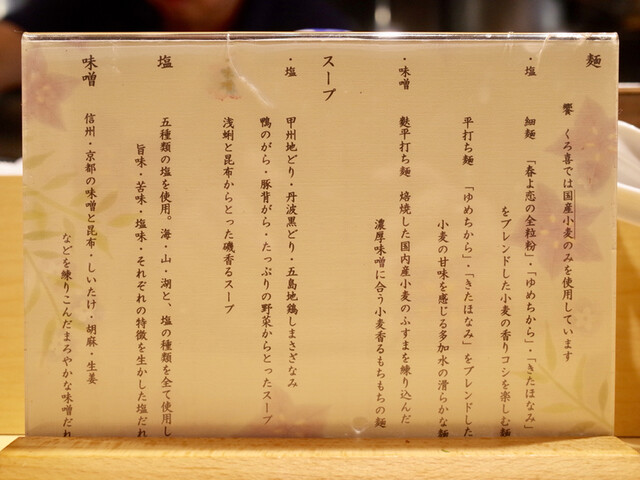 麺
饗 くろ喜では国産小麦のみを使用しています
・塩 細麺 「春よ恋の全粒粉」・「ゆめちから」・「きたほなみ」
をブレンドした小麦の香りコシを楽しむ麺
平打ち麺 「ゆめちから」・「きたほなみ」をブレンドした
小麦の甘味を感じる多加水の滑らかな麺
・味噌 麩平打ち麺 焙焼した国内産小麦のふすまを練り込んだ
濃厚味噌に合う小麦香るもちもちの麺
スープ
・塩 甲州地どり・丹波黒どり・五島地鶏しまさざなみ
鴨のがら・豚背がら・たっぷりの野菜からとったスープ
浅蜊と昆布からとった磯香るスープ
塩 五種類の塩を使用。海・山・湖と、塩の種類を全て使用し
旨味・苦味・塩味・それぞれの特徴を生かした塩だれ
味噌 信州・京都の味噌と昆布・しいたけ・胡麻・生姜
などを練りこんだまろやかな味噌だれ